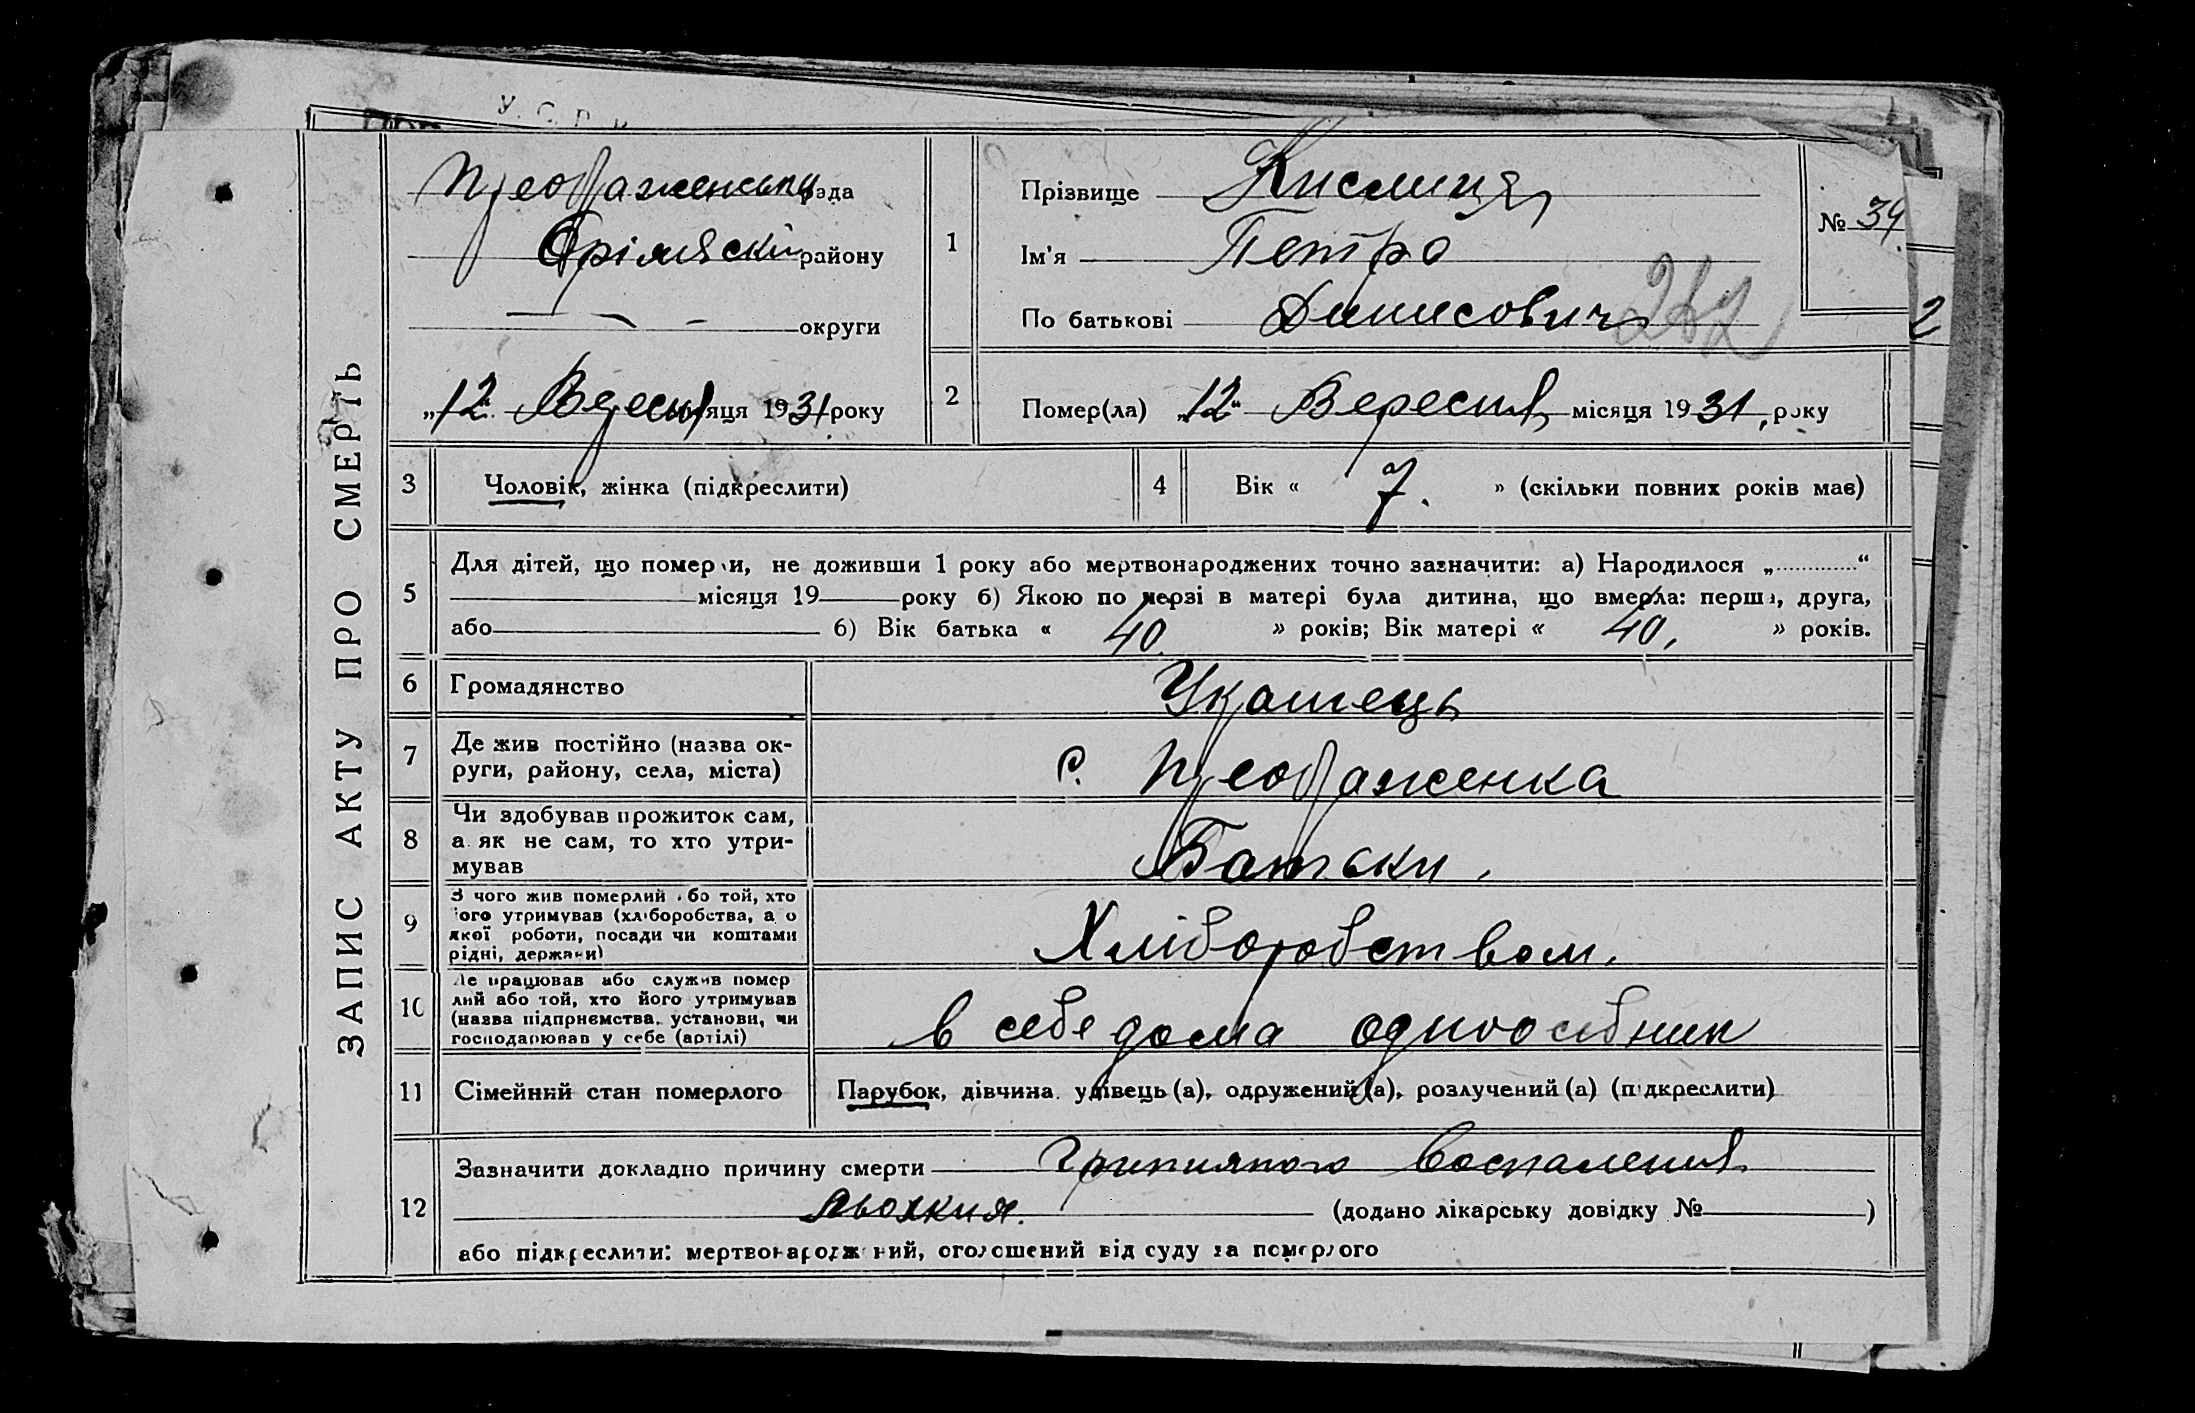 У. С. Р. Р.
ЗАПИС АКТУ ПРО СМЕРТЬ
Преображенська рада
району
округи
„12“ Вересня місяця 1931 року
1
Прізвище Кислиця
Ім'я Петро
По батькові Динисович
№ 34
2
2
Помер(ла) „12“ Вересня місяця 1931, року
3
Чоловік, жінка (підкреслити)
4
Вік « 7. » (скільки повних років має)
5
Для дітей, що померли, не доживши 1 року або мертвонароджених точно зазначити: а) Народилося „............“
місяця 19 року б) Якою по черзі в матері була дитина, що вмерла: перша, друга,
або 6) Вік батька « 40. » років; Вік матері « 40, » років.
6
Громадянство
Українець
7
Де жив постійно (назва ок-
руги, району, села, міста)
с. Преображенка
8
Чи здобував прожиток сам,
а як не сам, то хто утри-
мував
Батьки.
9
З чого жив померлий або той, хто
його утримував (хліборобства, а о
якої роботи, посади чи коштами
рідні, держави)
Хліборобством.
10
Де працював або служив помер
лий або той, хто його утримував
(назва підприємства, установи, чи
господарював у себе (артілі)
в себе дома одноосібник
11
Сімейний стан померлого
Парубок, дівчина, удівець (а), одружений (а), розлучений (а) (підкреслити)
12
Зазначити докладно причину смерти воспаления
льохкия.
(додано лікарську довідку № )
або підкреслити: мертвонароджений, оголошений від суду за померлого